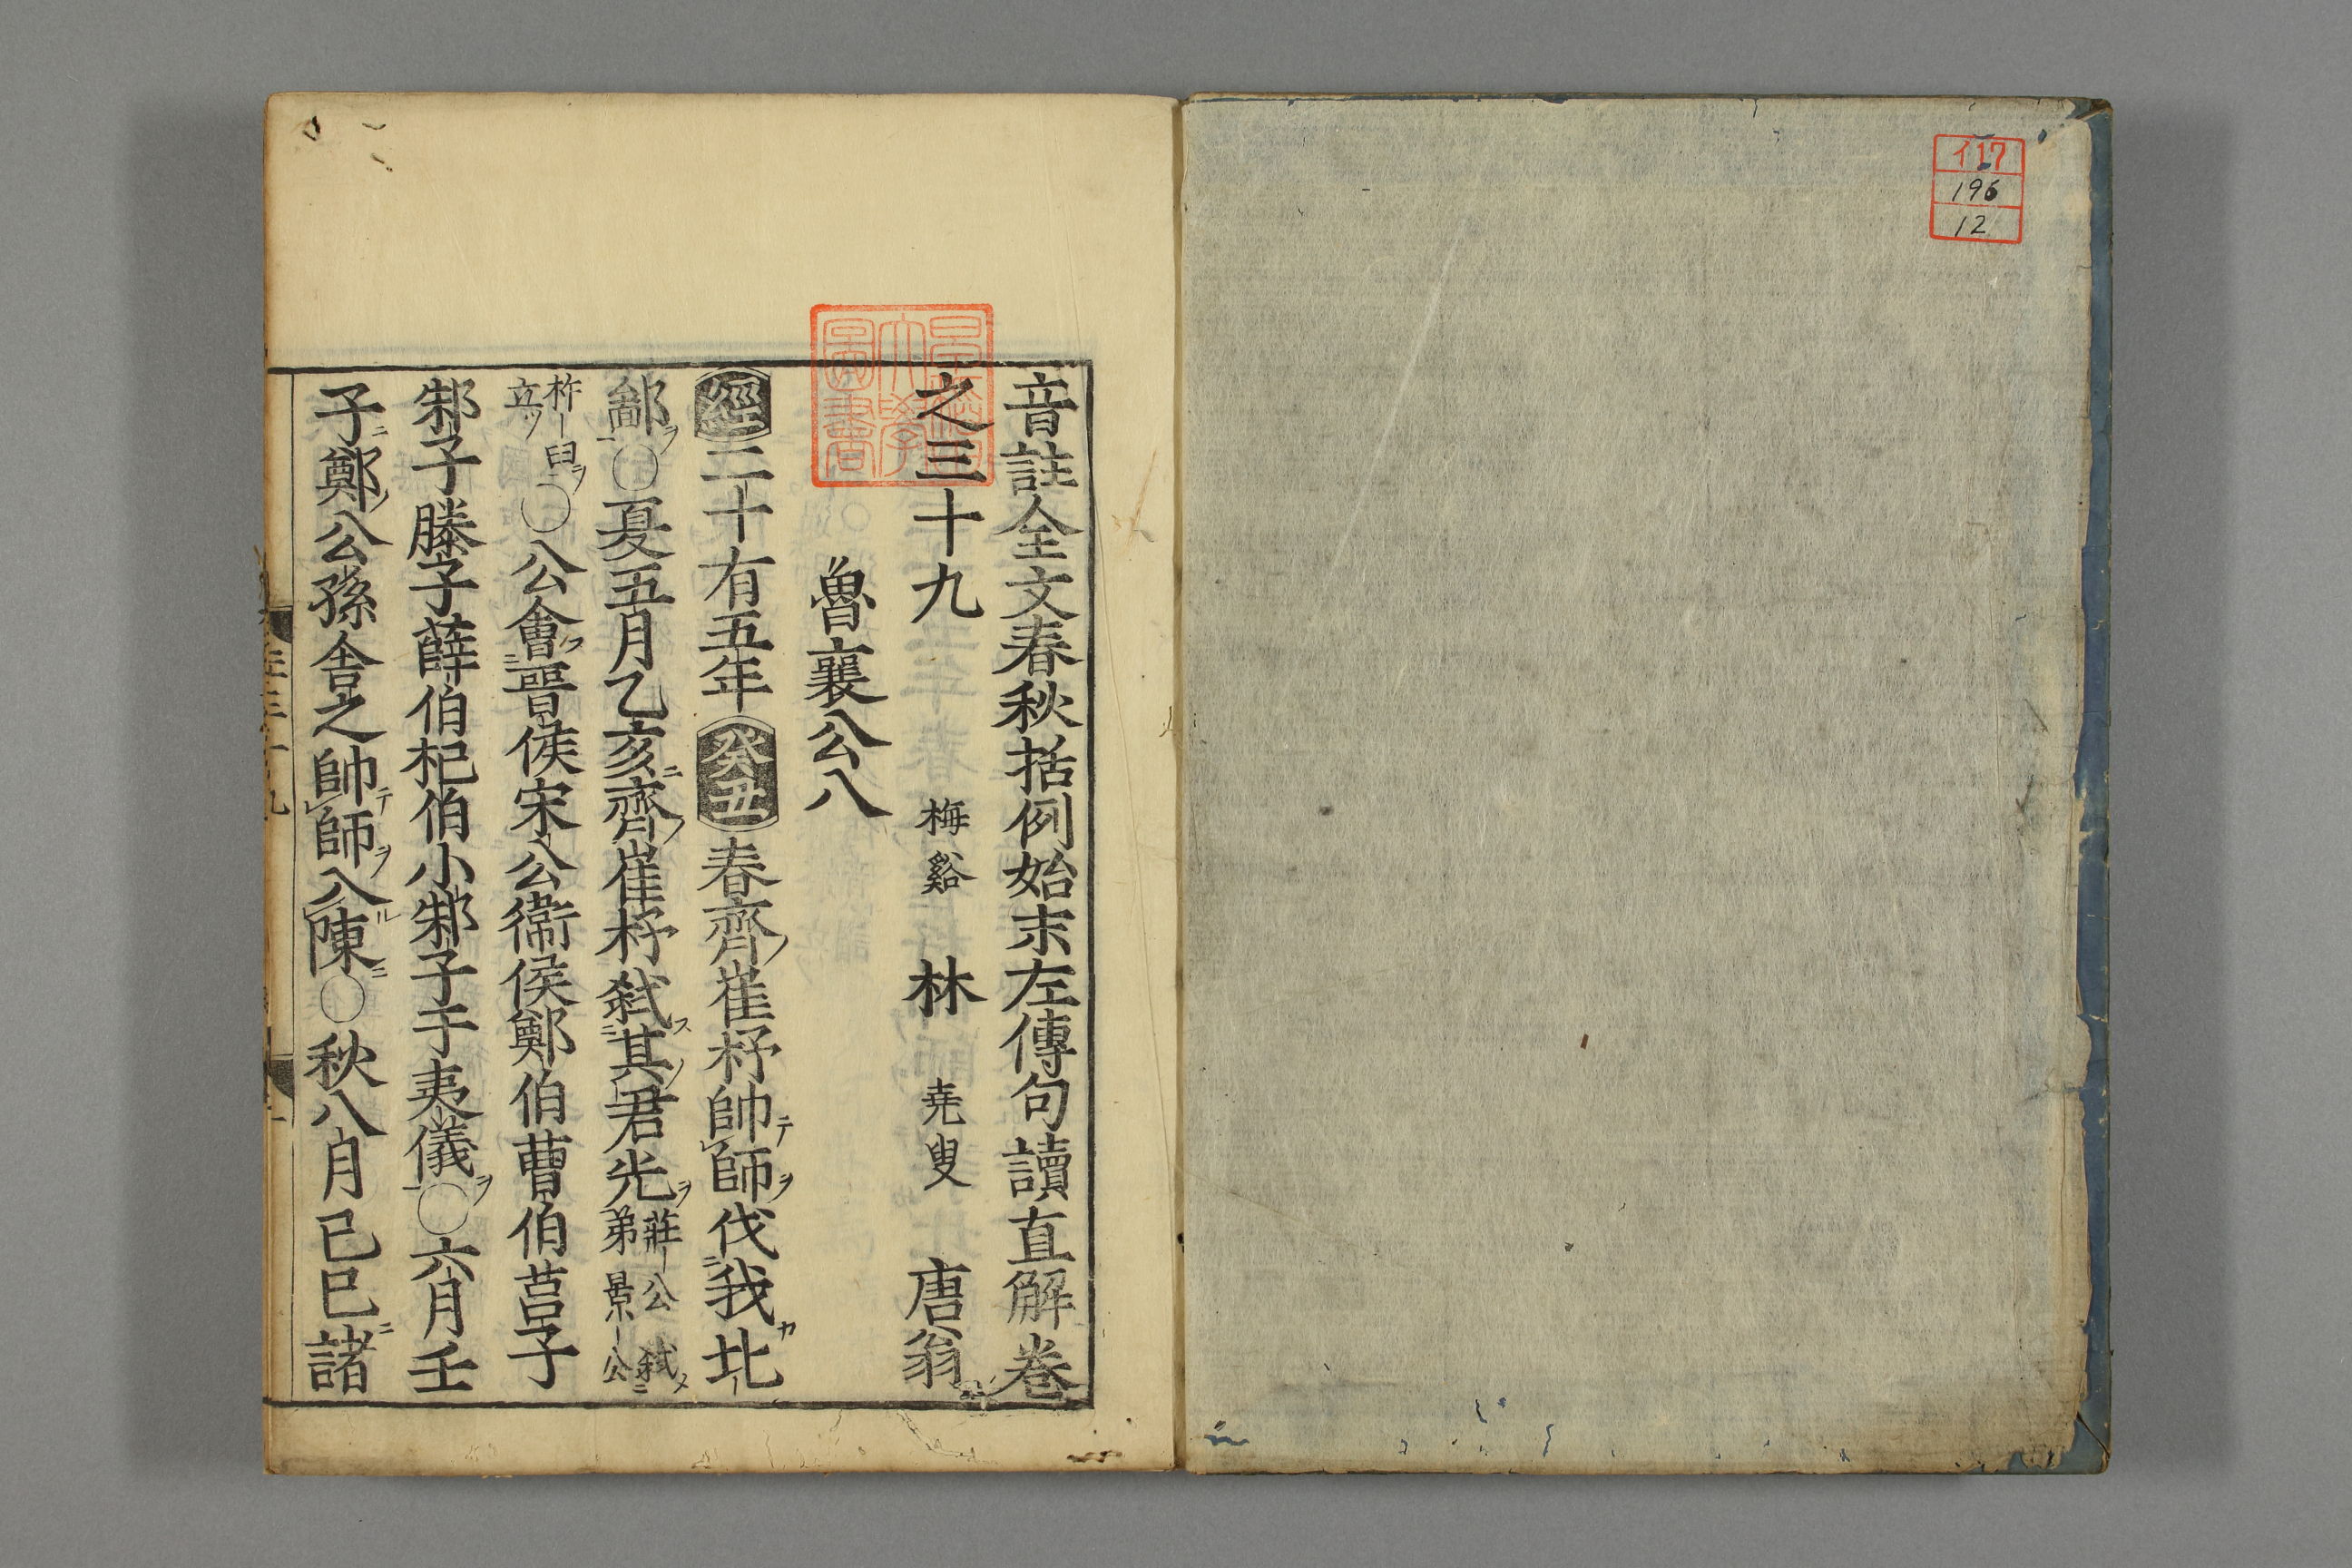 イ17
196
12
音註全文春秋括例始末左傳句讀直解卷
之三十九 梅谿 林 堯叟 唐翁
魯襄公八
經二十有五年癸丑春齊崔杼帥師伐我北
鄙○夏五月乙亥齊崔杼弑其君光莊公弑弟景公
杵臼立○公會晉侯宋公衞侯鄭伯曹伯莒子
邾子滕子薛伯杞伯小邾子于夷儀○六月壬
子鄭公孫舍之帥師入陳○秋八月己巳諸